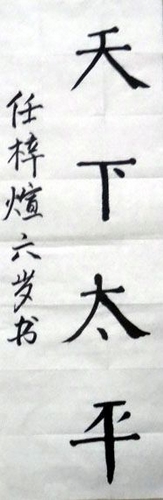 天下太平
任梓煊六岁书